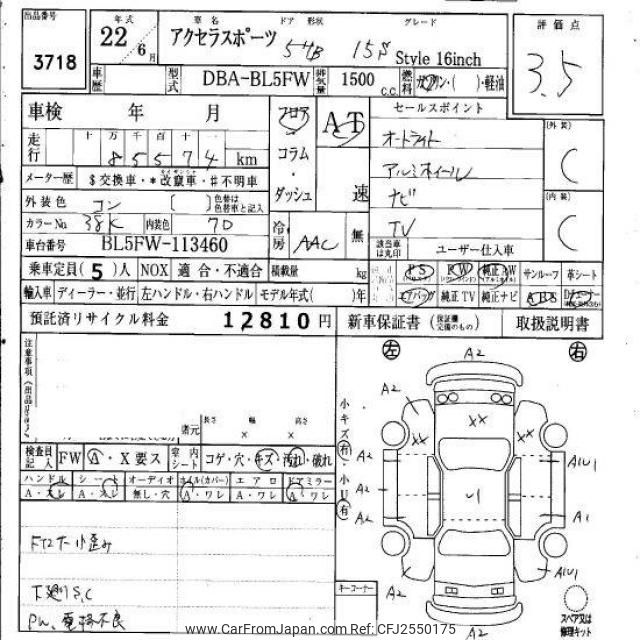 出品番号 年式 車名 ドア 形状 グレード 評価点
3718 22 6月 アクセラスポーツ 5HB 15S Style 16inch 3.5
車歴 型式 DBA-BL5FW 排気量 1500 c.c. 燃料 ガソリン・( )・軽油
車検 年 月 フロア AT セールスポイント (外装) C
走行 十万千百十一 85574 km コラム・ オートライト
メーター歴 $交換車・*改竄車・#不明車 ダッシュ 速 アルミホイール (内装) C
外装色 コン [ ] 色替は色替車と記入 冷房 AAC 無 ナビ
カラーNo 38K 内装色 70 TV
車台番号 BL5FW-113460 該当車は丸印 ユーザー仕入車
乗車定員(5)人 NOX 適合・不適合 積載量 kg PS PW 純正AW サンルーフ 革シート
輸入車 ディーラー・並行 左ハンドル・右ハンドル モデル年式( )年 エアバッグ 純正TV 純正ナビ ABS
預託済リサイクル料金 12810円 新車保証書(保証継交換のもの) 取扱説明書
注意事項 左 右
A2
A2
小キズ(有)・小U(有)
XX
XX
諸元 長さ 幅 高さ
× ×
A2 A1U1
検査員記入 FW A・X要ス 室内シート コゲ・穴・キズ・汚れ・破れ
ハンドル シート オーディオ ホイル(カバー) エアロ ドアミラー
A・スレ A・スレ 無し・穴 A・ワレ A・ワレ A・ワレ
A2 U1
A2 A1
下廻りS,C
PW、電格不良
A2 A1U1
キーコーナー
A2
スペア又は修理キット
www.CarFromJapan.com Ref: CFJ2550175